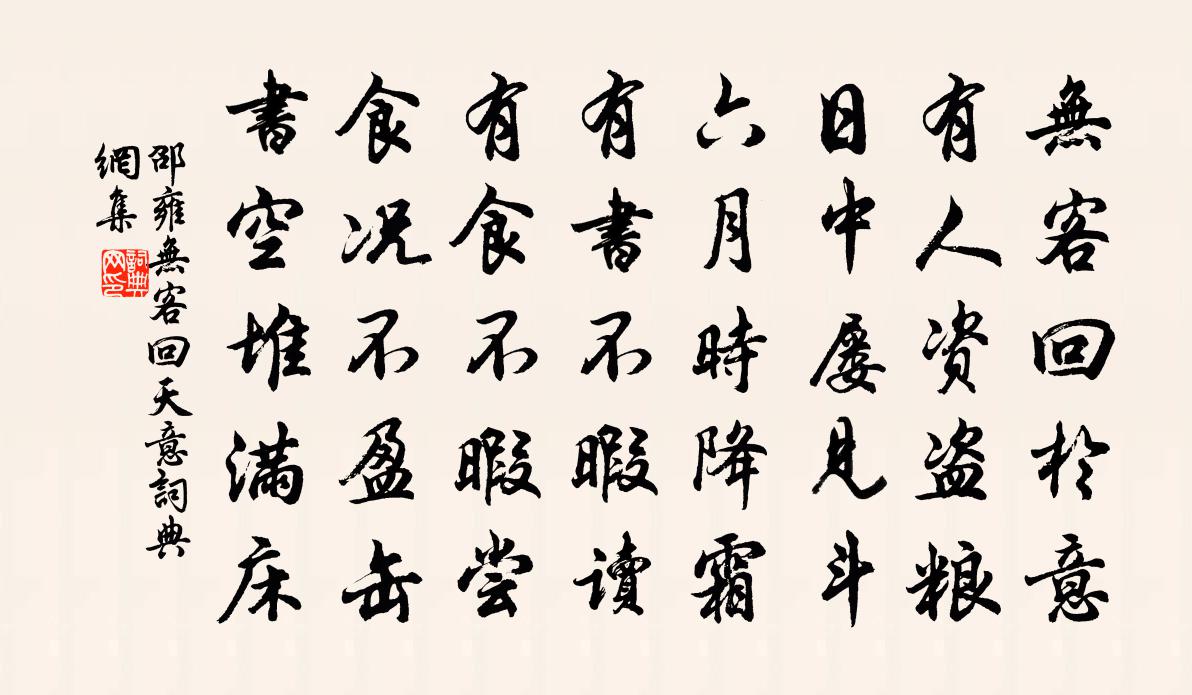 無客回於意
有人资盗粮
日中屡見斗
六月時降霜
有書不暇读
有食不暇尝
食况不盈缶
書空堆满床
邵雍無客回天意詞典
網集
詞典
网印